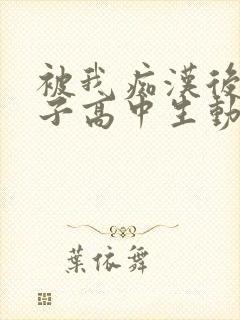 被我痴漢後
子高中生動
葉依舞